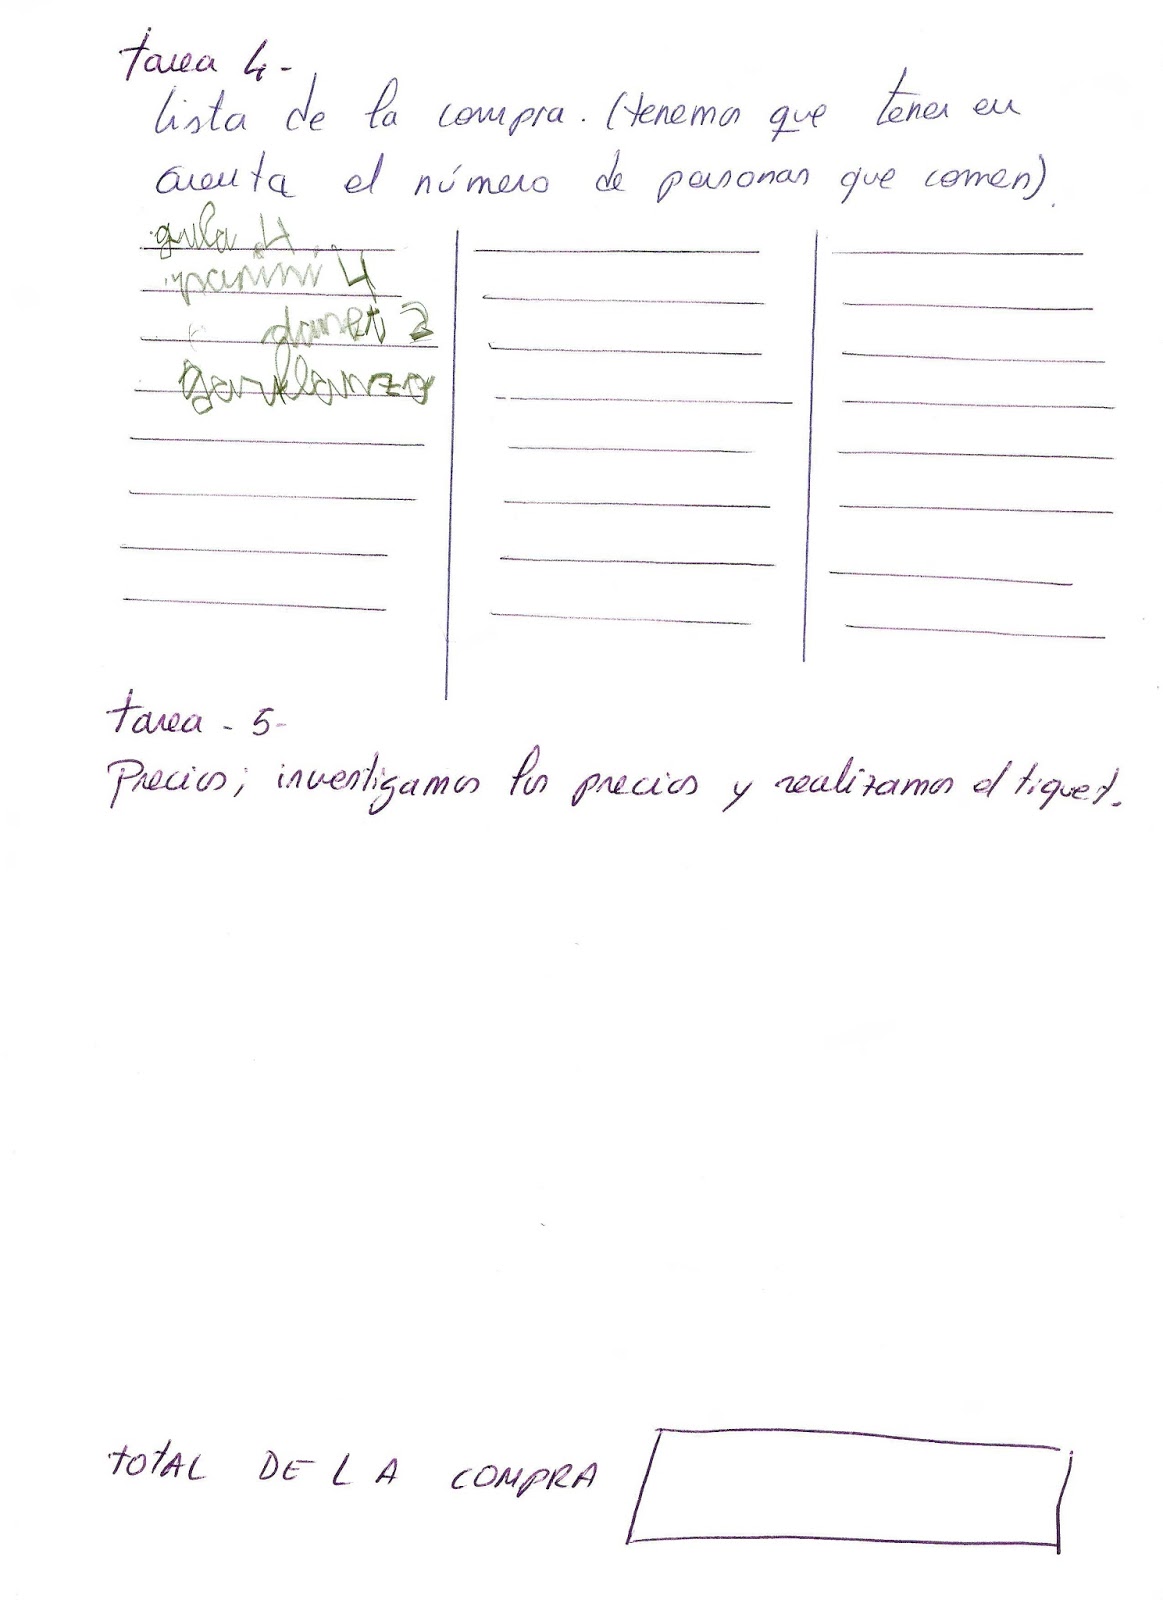 tarea 4-
lista de la compra. (tenemos que tener en
cuenta el número de personas que comen).
gula 4
panini 4
danet 2
garbanzo
tarea - 5-
Precios; investigamos los precios y realizamos el tiquet.
TOTAL DE LA COMPRA